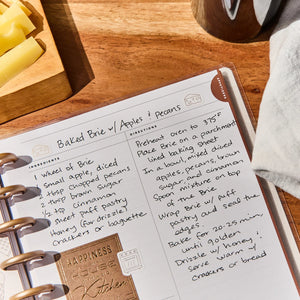 Baked Brie w/ Apples & pecans
INGREDIENTS
1 wheel of Brie
1 small apple, diced
2 tbsp chopped pecans
1 tbsp brown sugar
1/2 tsp cinnamon
1 sheet puff pastry
Honey (for drizzle)
Crackers or baguette
DIRECTIONS
Preheat oven to 375°F
Place Brie on a parchment
lined baking sheet
In a bowl, mixed diced
apples, pecans, brown
sugar, and cinnamon
Spoon mixture on top
of the Brie
Wrap Brie w/ Puff
pastry and seal the
edges.
Bake for 20-25 min.
until golden
Drizzle w/ honey &
serve warm w/
crackers or bread
HAPPINESS
Kitchen